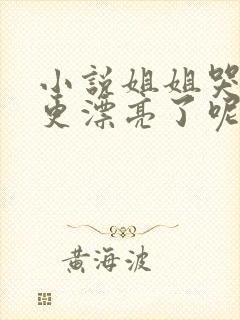 小説姐姐哭
更漂亮了呢
黄海波